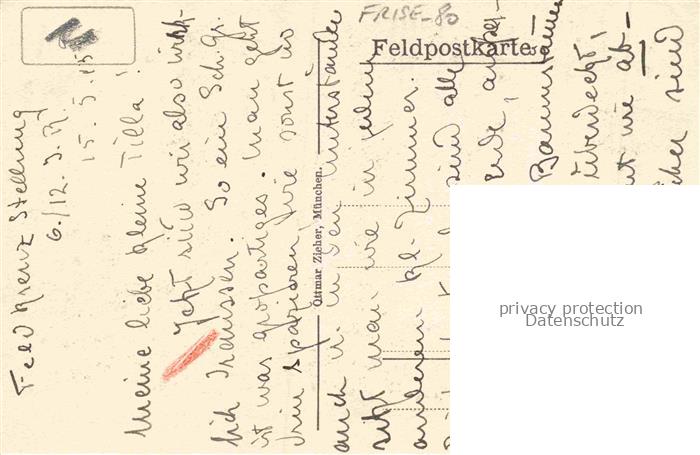 FRISE-80
Feldpostkarte
Ottmar Zieher, München.
Feldkreuz Stellung
6./12. J. R.
15. 5. 15
Meine liebe kleine Tilla!
Jetzt sind wir also wirk-
lich draussen. So ein Sch.gr.
ist was großartiges. Man geht
drin spazieren wie sonst wo
auch u. in den Unterständen
sitzt man wie in jedem
anderen kl. Zimmer.
sind alle
Erde,
Baumstämme
überdeckt,
ab-
sind
privacy protection
Datenschutz